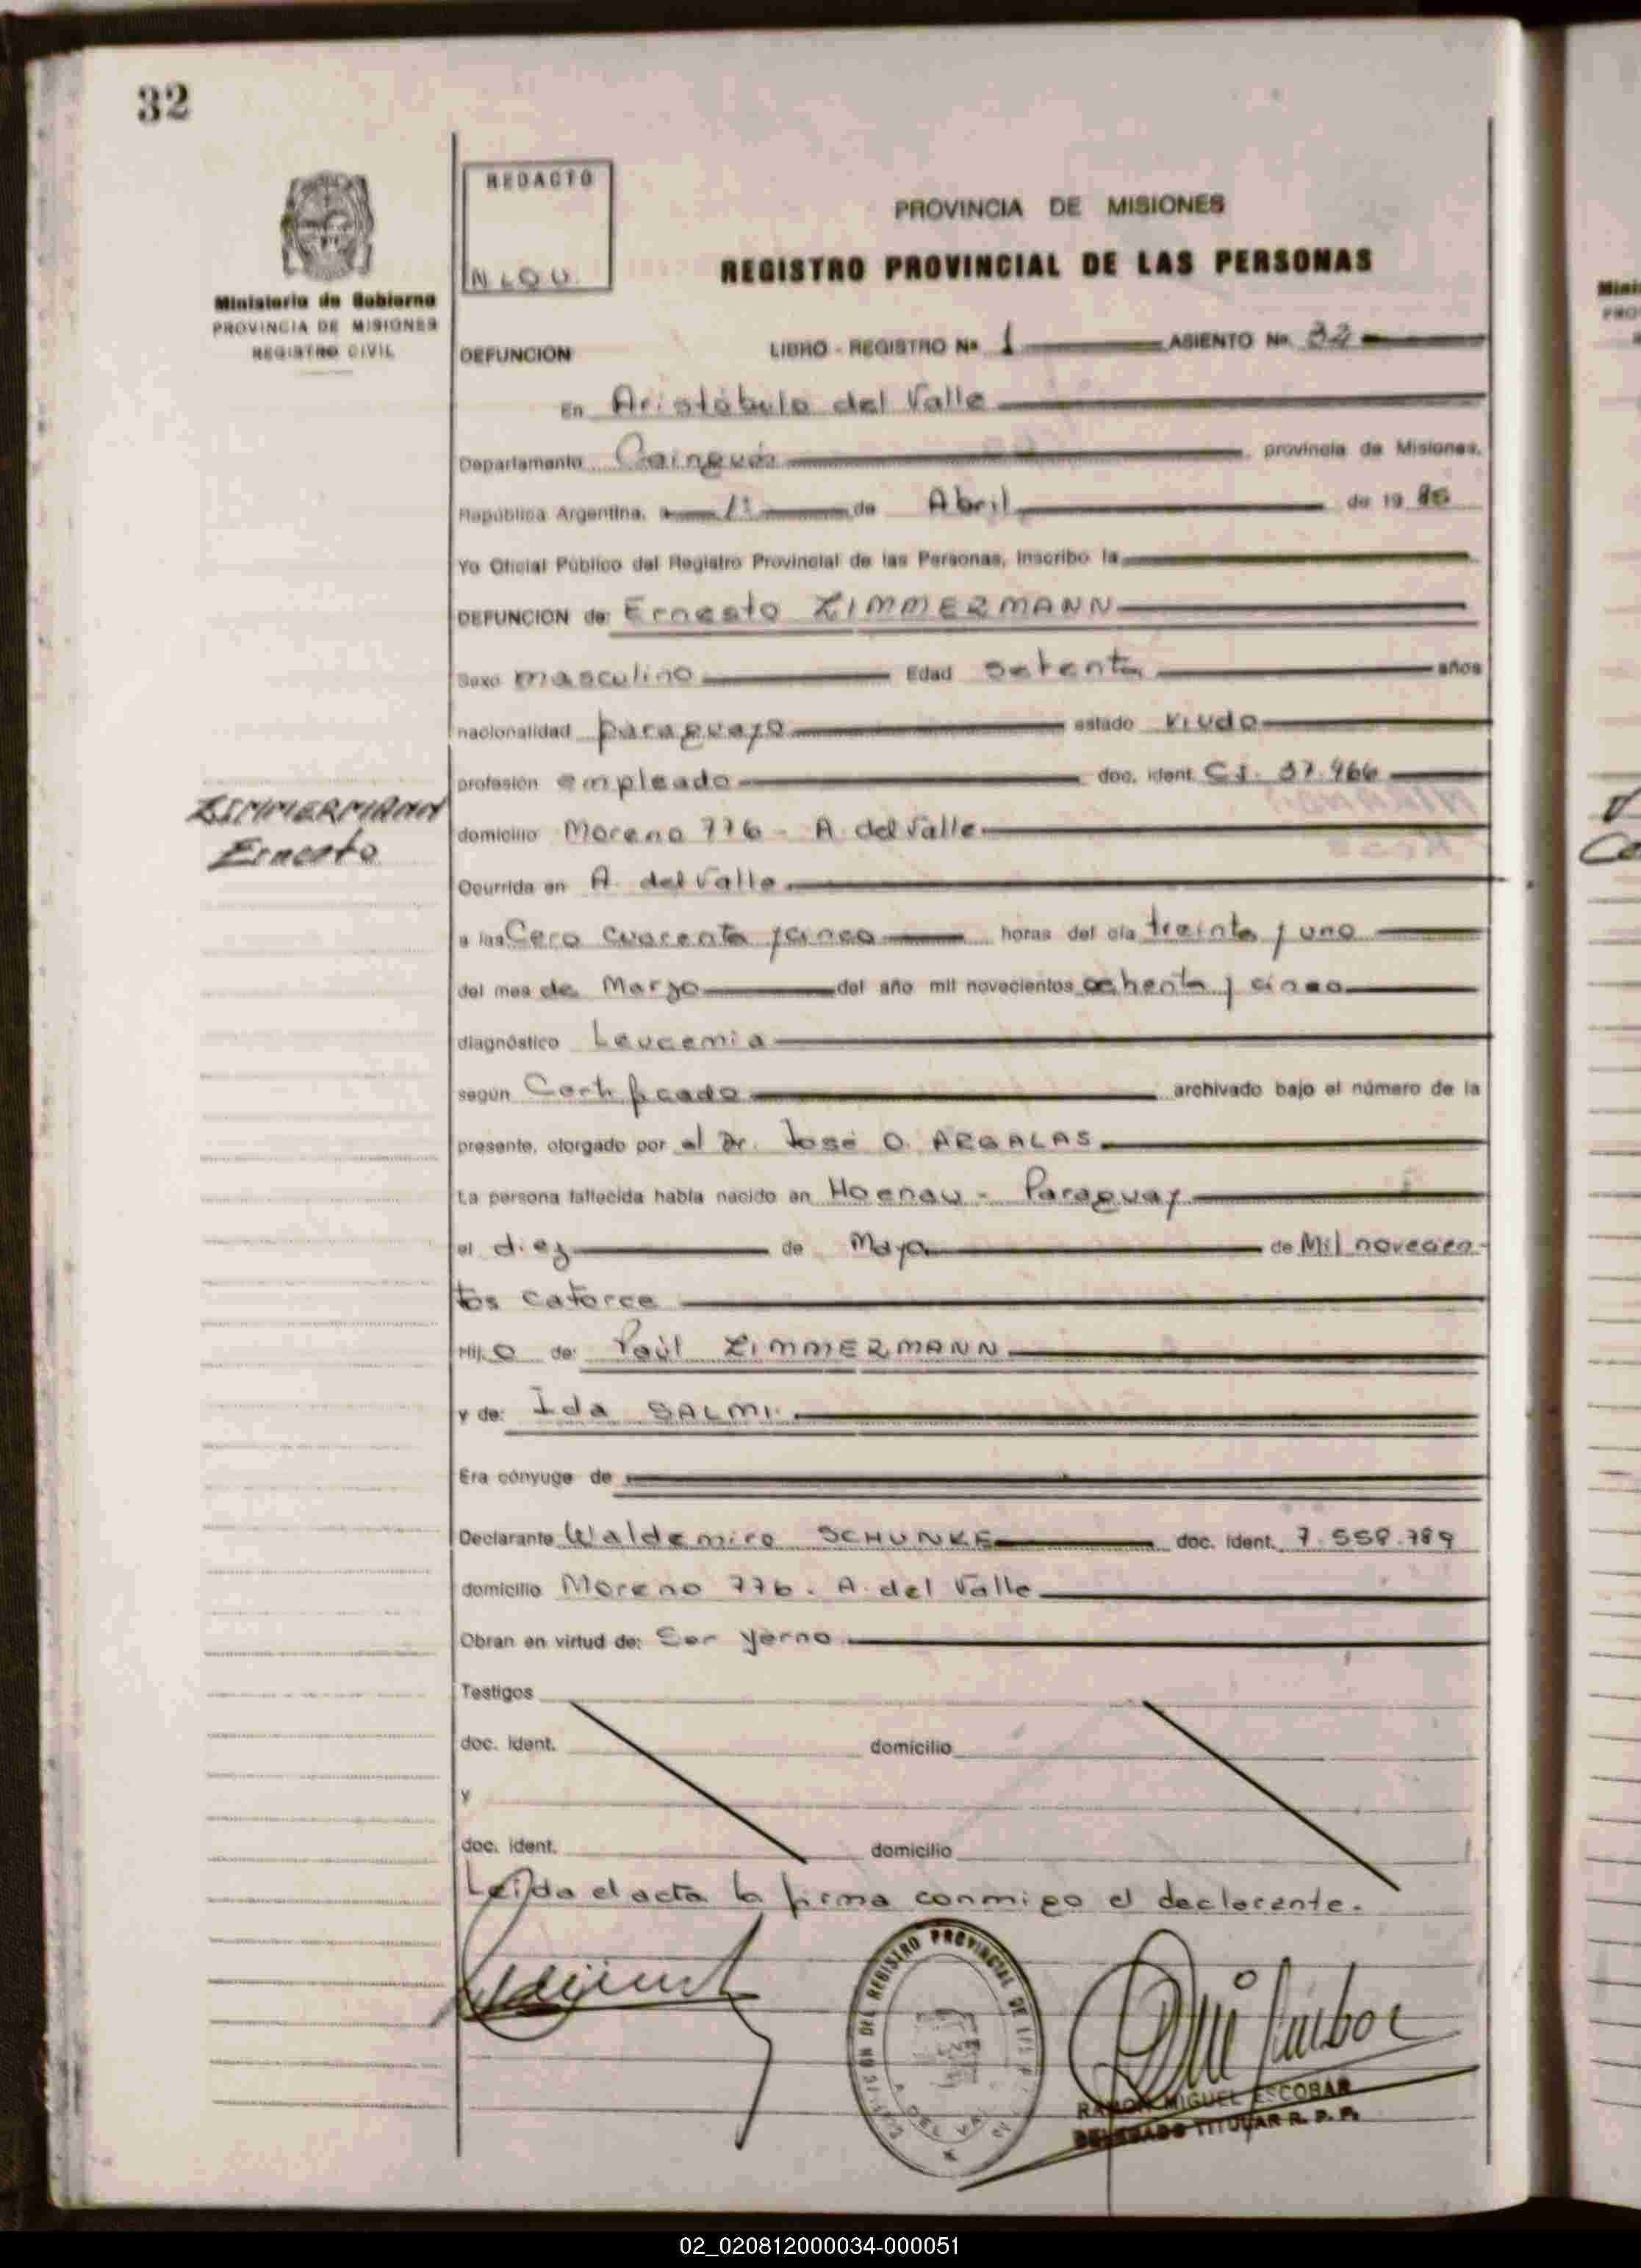 32
REDACTO
PROVINCIA DE MISIONES
REGISTRO PROVINCIAL DE LAS PERSONAS
Ministerio de Gobierno
PROVINCIA DE MISIONES
REGISTRO CIVIL
DEFUNCION LIBRO - REGISTRO Nº 1 ASIENTO Nº 32
En Aristóbulo del Valle
Departamento Cainguás, provincia de Misiones,
República Argentina, a 1º de Abril de 19
Yo Oficial Público del Registro Provincial de las Personas, inscribo la
DEFUNCION de: Ernesto ZIMMERMANN
Sexo masculino Edad setenta años
nacionalidad paraguayo estado viudo
profesión empleado doc. ident. C.I. 37.966
ZIMMERMANN
Ernesto
domicilio Moreno 776 - A. del Valle
Ocurrida en A. del Valle
a las Cero cuarenta y cinco horas del día treinta y uno
del mes de Marzo del año mil novecientos ochenta y cinco
diagnóstico Leucemia
según Certificado archivado bajo el número de la
presente, otorgado por el Dr. José O. ARGALAS
La persona fallecida había nacido en Hoenau - Paraguay
el diez de Mayo de Mil novecien-
tos catorce
Hijo de: Paúl ZIMMERMANN
y de: Ida SALMI
Era cónyuge de
Declarante Waldemiro SCHUNKE doc. ident. 7.558.789
domicilio Moreno 776. A. del Valle
Obran en virtud de: Ser yerno
Testigos
doc. ident. domicilio
y
doc. ident. domicilio
Leída el acta la firma conmigo el declarante.
DEL REGISTRO PROVINCIAL DE
RAMON MIGUEL ESCOBAR
DELEGADO TITULAR R. P. P.
02_020812000034-000051